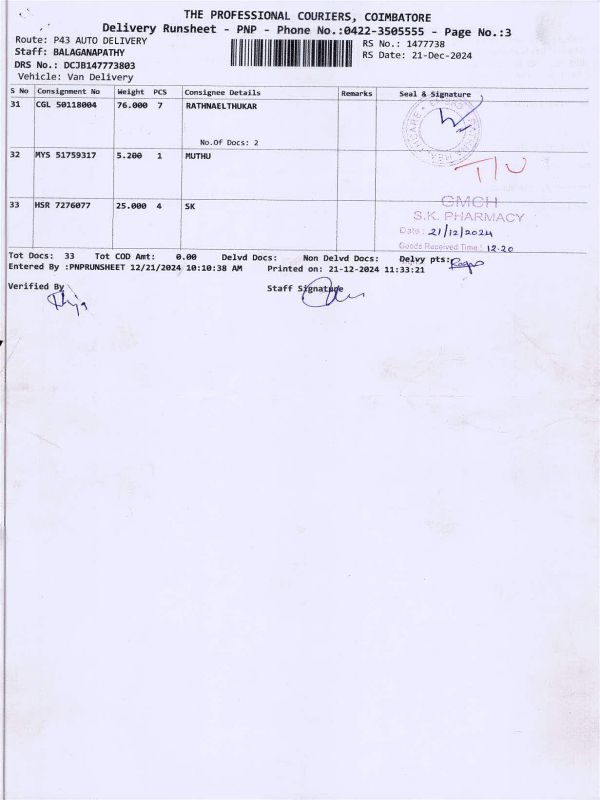 THE PROFESSIONAL COURIERS, COIMBATORE
Delivery Runsheet - PNP - Phone No.:0422-3505555 - Page No.:3
Route: P43 AUTO DELIVERY
RS No.: 1477738
Staff: BALAGANAPATHY
RS Date: 21-Dec-2024
DRS No.: DCJB147773803
Vehicle: Van Delivery
S No Consignment No Weight PCS Consignee Details Remarks Seal & Signature
31 CGL 50118004 76.000 7 RATHNAELTHUKAR
No.Of Docs: 2
32 MYS 51759317 5.200 1 MUTHU
T/U
33 HSR 7276077 25.000 4 SK
GMCH
S.K. PHARMACY
Date: 21/12/2024
Goods Received Time: 12.20
Tot Docs: 33 Tot COD Amt: 0.00 Delvd Docs: Non Delvd Docs: Delvy pts:
Entered By :PNPRUNSHEET 12/21/2024 10:10:38 AM Printed on: 21-12-2024 11:33:21
Verified By
Staff Signature